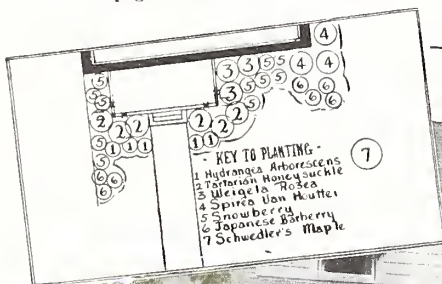 4
3 3 5 5 4 4
5 5 5 5
5 3 5 6 6
5 2 2 5 6 6
2 2 2 2
1 1 1 1 1
5
5
6
6 6
- KEY TO PLANTING -
1 Hydrangea Arborescens
2 Tartarian Honeysuckle
3 Weigela Rosea
4 Spirea Van Houttei
5 Snowberry
6 Japanese Barberry
7 Schwedler's Maple
7